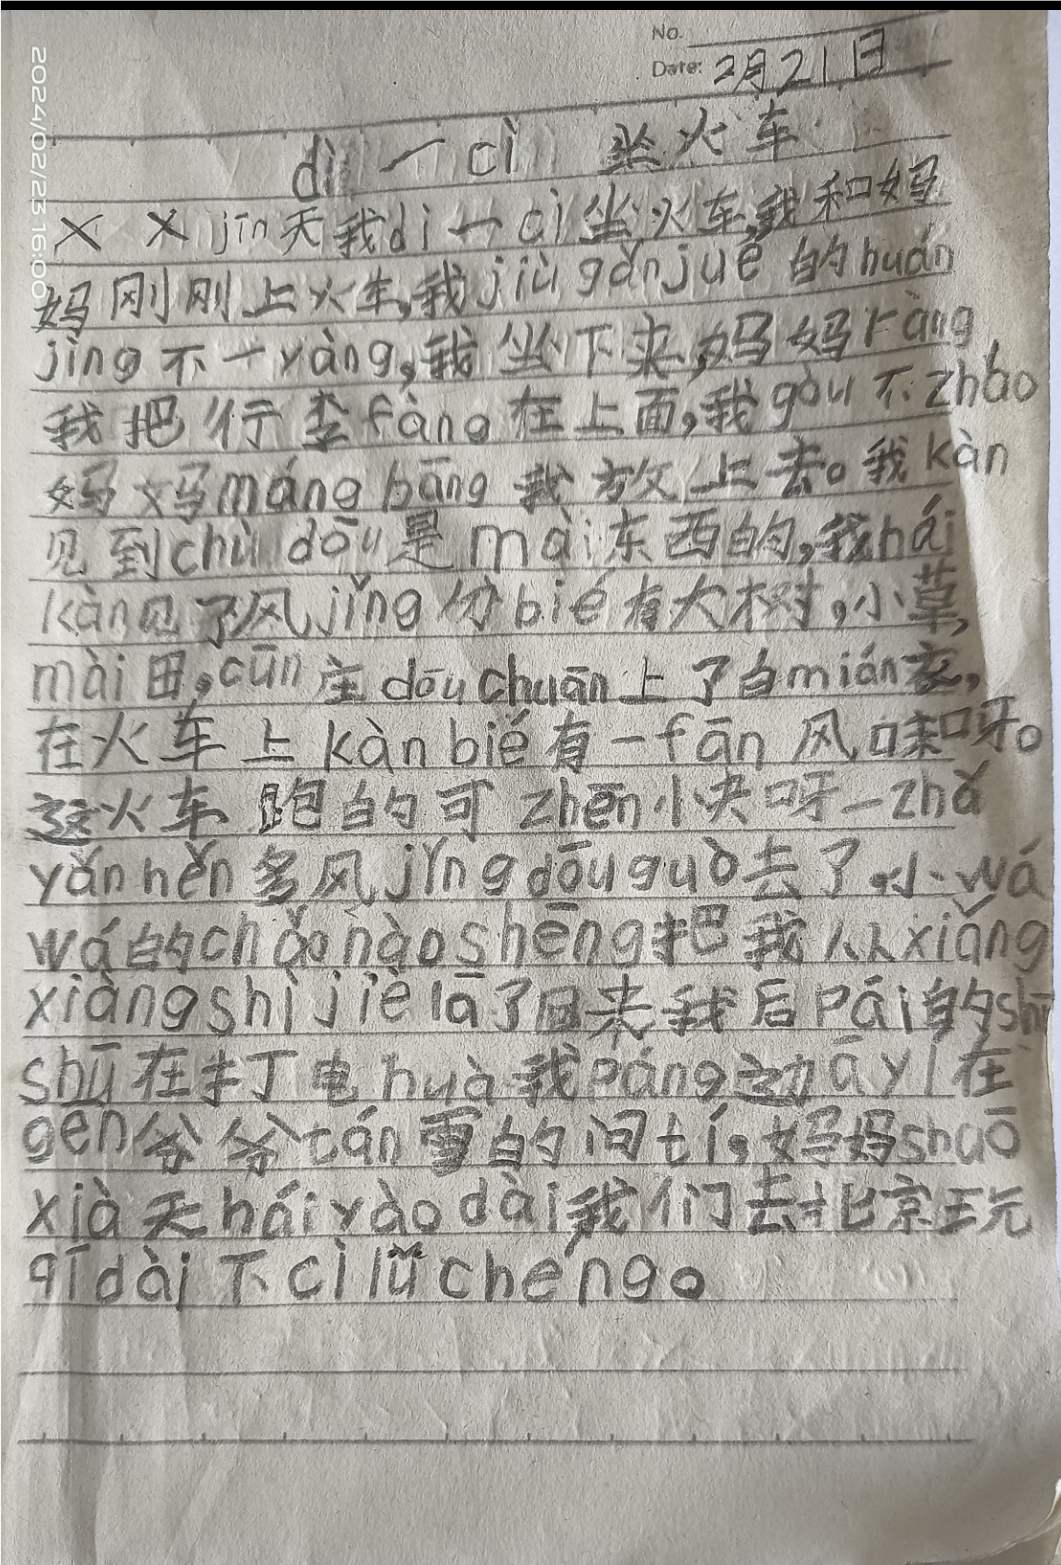 No.
Date: 2月21日
2024/02/23 16:00
dì一cì 坐火车
× × jīn天我dì一cì坐火车,我和妈
妈刚刚上火车,我jiù gǎnjué的huán
jìng不一yàng,我坐下来,妈妈ràng
我把行李fàng在上面,我gòu不zháo
妈妈máng bāng我放上去。我kàn
见到chù dōu是mài东西的,我hái
kàn见了风jǐng分bié有大树,小草,
mài田,cūn庄dōu chuān上了白mián衣,
在火车上kàn bié有一fān风味呀。
这火车跑的可zhēn小夬呀一zhǎ
yǎn hěn多风jǐng dōu guò去了。小wá
wá的chǎo nào shēng把我从xiǎng
xiàng shì jiè lā了回来我后pái的shū
shū在打电huà我páng边ā yí在
gēn爷爷tán雪的问tí,妈妈shuō
xià天hái yào dài我们去北京玩
qī dài下cì lǚ chéng。